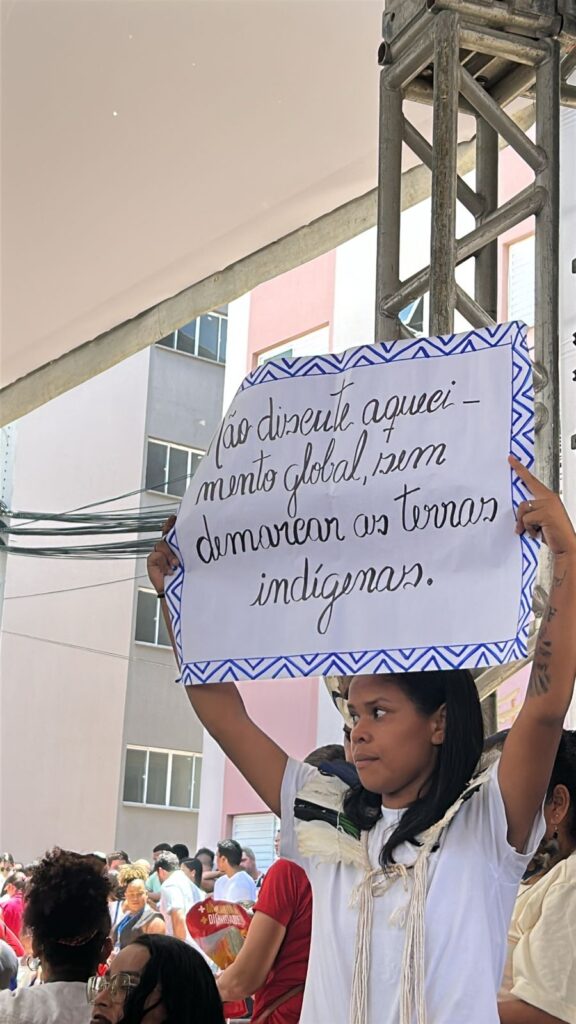 Não discute aqueci-
mento global, sem
demarcar as terras
indígenas.
+ DIGNIDADE